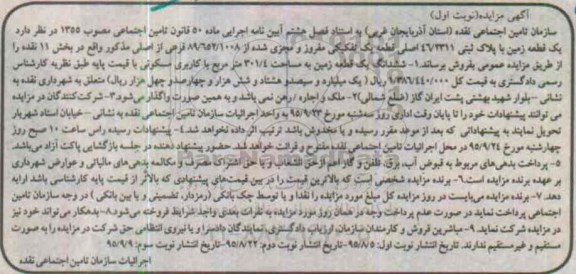 آگهی مزایده(نوبت اول)
سازمان تامین اجتماعی نقده (استان آذربایجان غربی) به استناد فصل هشتم آیین نامه اجرایی ماده ۵۰ قانون تامین اجتماعی مصوب ۱۳۵۵ در نظر دارد
یک قطعه زمین با پلاک ثبتی ۴۶/۲۳۱۱ اصلی قطعه یک تفکیکی مفروز و مجزی شده از ۸۹۶۵۲/۱۰۰۸ فرعی از اصلی مذکور واقع در بخش ۱۱ نقده را
از طریق مزایده عمومی بفروش برساند.۱- ششدانگ یک قطعه زمین به مساحت ۳۰۱/۴ متر مربع با کاربری مسکونی با قیمت پایه طبق نظریه کارشناس
رسمی دادگستری به قیمت کل ۱/۳۸۶/۴۴۰/۰۰۰ ریال ( یک میلیارد و سیصد و هشتاد و شش هزار و چهارصد و چهل هزار ریال) متعلق به شهرداری نقده به
نشانی – بلوار شهید بهشتی پشت ایران گاز (ضلع شمالی)۲- ملک و اجاره / رهن نمی باشد و به همین صورت واگذار می شود۳- شرکت کنندگان در مزایده
می توانند پیشنهادات خود را تا پایان وقت اداری روز سه شنبه مورخ ۹۵/۹/۲۳ به واحد اجرائیات سازمان تامین اجتماعی نقده به نشانی – خیابان استاد شهریار
تحویل نمایند به پیشنهاداتی که بعد از موعد مقرر رسیده و یا مخدوش باشد ترتیب اثر داده نخواهد شد.۴- پیشنهادات رسیده راس ساعت ۱۰ صبح روز
چهارشنبه مورخ ۹۵/۹/۲۴ در محل اجرائیات تامین اجتماعی نقده مفتوح و قرائت خواهد شد. حضور پیشنهاد دهنده در جلسه بازگشایی پاکت آزاد می باشد.
۵- پرداخت بدهی های مربوط به قبوض آب، برق، تلفن و گاز اعم از حق انشعاب و یا حق اشتراک مصرف و مکالمه بدهی های مالیاتی و عوارض شهرداری
بر عهده برنده مزایده است.۶- برنده مزایده شخصی است که بالاترین قیمت را در بین قیمت های پیشنهادی که بالاتر از قیمت پایه کارشناسی باشد ارایه
دهد. ۷- برنده مزایده می بایست در روز مزایده کل مبلغ مورد مزایده را نقدا و یا توسط چک بانکی (رمزدار، تضمینی و یا بین بانکی ) در وجه سازمان تامین
اجتماعی پرداخت نماید در صورت عدم پرداخت وجه در همان روز مورد مزایده به نفرات بعدی واجد شرایط فروخته می شود.۸- بدهکار می تواند خود نیز
در مزایده شرکت نماید. ۹- مباشرین فروش و کارمندان سازمان، ارزیاب دادگستری، نمایندگان دادسرا و یا نیروی انتظامی حق شرکت در مزایده را به صورت
مستقیم و غیرمستقیم ندارند. تاریخ انتشار نوبت اول: ۹۵/۸/۵-تاریخ انتشار نوبت دوم: ۹۵/۸/۲۲-تاریخ انتشار نوبت سوم: ۹۵/۹/۹
اجرائیات سازمان تامین اجتماعی نقده